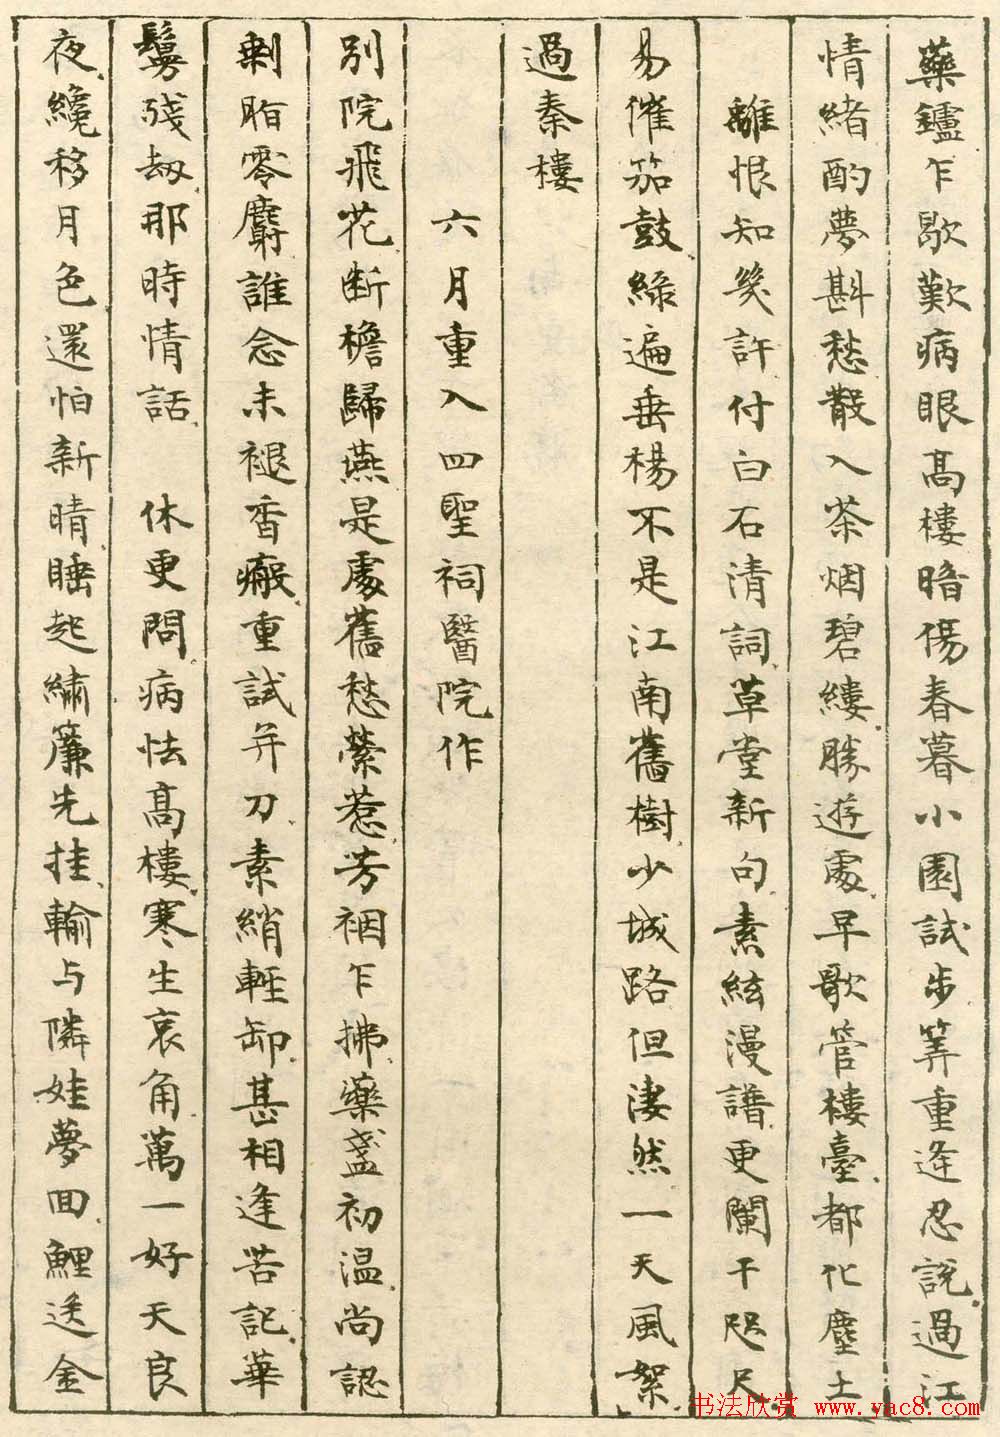 藥鑪乍歇歎病眼高樓暗傷春暮小園試步筭重逢忍說過江
情緒酌夢斟愁散入茶烟碧縷勝遊處早歌管樓臺都化塵土
離恨知幾許付白石清詞草堂新句素絃漫譜更闌干咫尺
易催笳鼓綠遍垂楊不是江南舊樹少城路但淒然一天風絮
過秦樓
六月重入四聖祠醫院作
別院飛花断檐歸燕是處舊愁縈惹芳裀乍拂藥盞初温尚認
剩脂零麝誰念未褪香瘢重試并刀素綃輕卸甚相逢苦記華
鬘殘刼那時情話 休更問病怯高樓寒生哀角萬一好天良
夜纔移月色還怕新晴睡起繡簾先挂輸与隣娃夢回鯉送金
书法欣赏 www.yac8.com